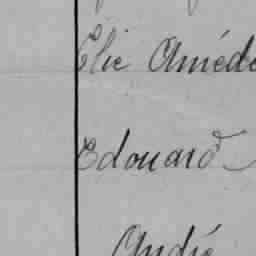 Elie Amédé
Edouard
André